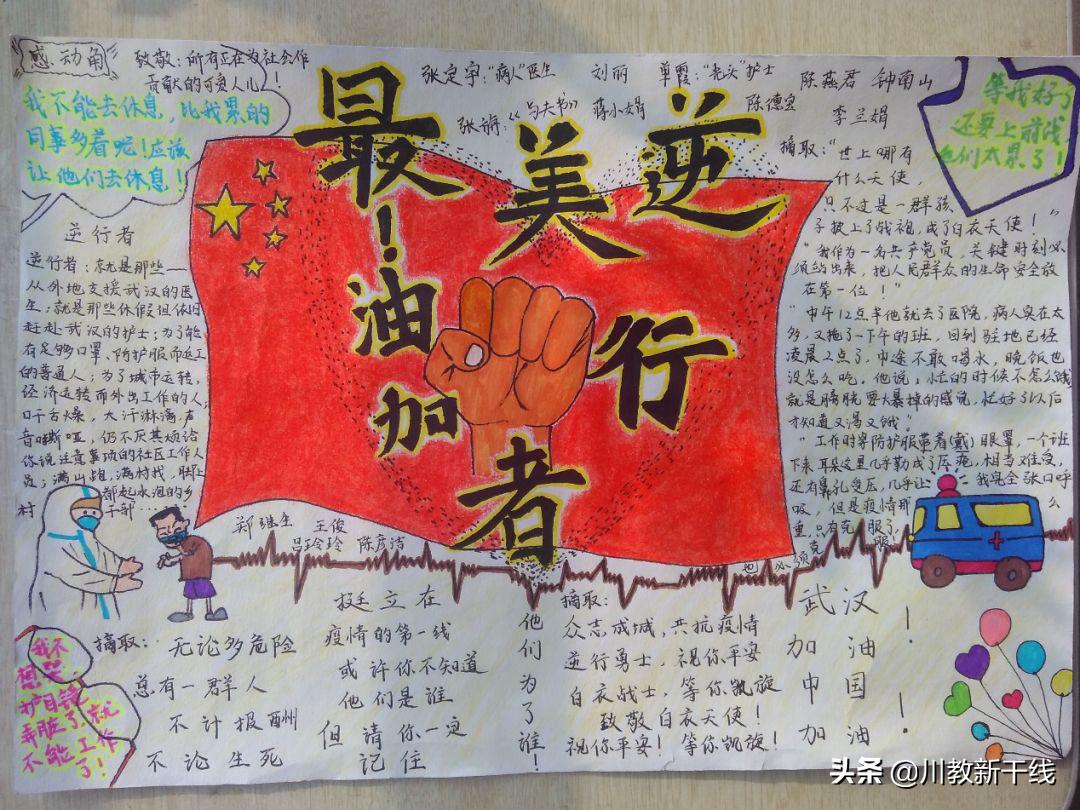 感动角
致敬：所有正在为社会作
贡献的可爱人儿！
我不能去休息，比我累的
同事多着呢！应该
让他们去休息！
张定宇："病人"医生
刘丽
单霞："老头"护士
陈燕君 钟南山
张旃：《与夫书》
蒋小娟
陈德昌
李兰娟
等我好了
还要上前线
他们太累了！
最美逆行者
加油！
逆行者
逆行者：就是那些一
从外地支援武汉的医
生；就是那些休假
赶赴武汉的护士；为了能
有足够口罩、防护服而返工
的普通人；为了城市运转，
经济运转而外出工作的人；
口干舌燥，大汗淋漓，声
音嘶哑，仍不厌其烦给
你说注意事项的社区工作人
员；满山跑，满村找，脚上
都起水泡的乡
村干部……
摘取："世上哪有
什么天使，
只不过是一群孩
子披上了战袍，成了白衣天使！"
"我作为一名共产党员，关键时刻必
须站出来，把人民群众的生命安全放
在第一位！"
"中午12点半他就去了医院，病人实在太
多，又拖了一下午的班，回到驻地已经
凌晨2点了，中途不敢喝水，晚饭也
没怎么吃。他说，忙的时候不怎么饿
就是膀胱要大爆掉的感觉，忙好了以后
才知道又渴又饿。
"工作时穿防护服带着(戴)眼罩，一个班
下来耳朵这里几乎勒成了压疮，相当难受，
还有鼻孔受压，几乎让我完全张口呼
吸，但是疫情那么
重，只有克服了，
也必须克服
郑继生 王俊
吕玲玲 陈彦洁
我不
想哭
护目镜
弄脏了，就
不能工作
了！
摘取：无论多危险
总有一群人
不计报酬
不论生死
挺立在
疫情的第一线
或许你不知道
他们是谁
但请你一定
记住
他们为了谁！
摘取：
众志成城，共抗疫情
逆行勇士，祝你平安
白衣战士，等你凯旋
致敬白衣天使！
祝你平安！等你凯旋！
武汉
加油！
中国
加油！
头条 @川教新干线